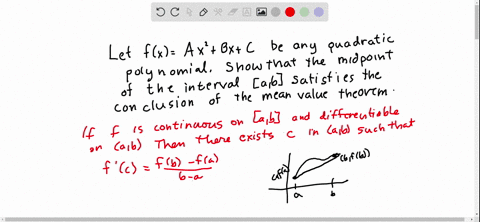 Let f(x) = Ax² + Bx + C be any quadratic
polynomial. Show that the midpoint
of the interval [a,b] satisfies the
conclusion of the mean value theorem.
If f is continuous on [a,b] and differentiable
on (a,b) Then there exists c in (a,b) such that
f'(c) = f(b) - f(a) / b - a
(a, f(a))
(b, f(b))
a b